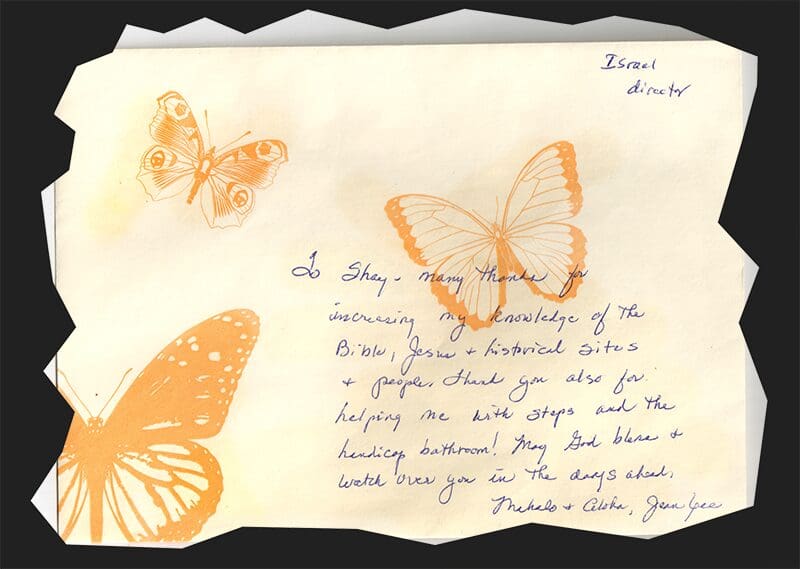 Israel
director
To Shay - many thanks for
increasing my knowledge of the
Bible, Jesus + historical sites
+ people. Thank you also for
helping me with steps and the
handicap bathroom! May God bless +
watch over you in the days ahead.
Mahalo + Aloha, Jean Lee